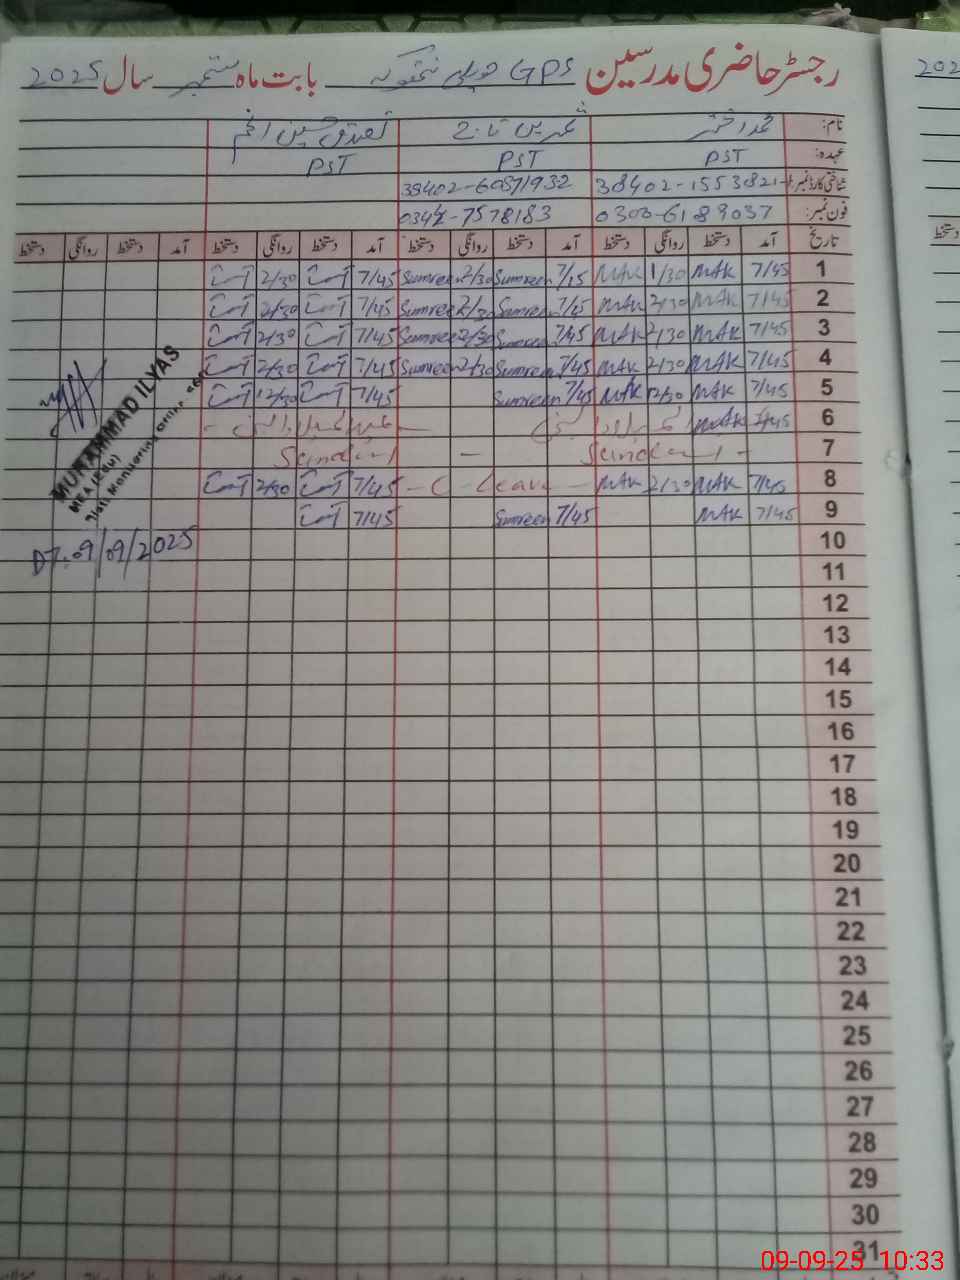 رجسٹر حاضری مدرسین GPS حویلی بابت ماہ ستمبر سال 2025
نام: محمد اختر ثمرین تاج تصدق حسین انجم
عہدہ: PST PST PST
شناختی کارڈ نمبر: 38402-1553821- 38402-60871932
فون نمبر: 0300-6189037 0344-7578183
تاریخ آمد دستخط روانگی دستخط آمد دستخط روانگی دستخط آمد دستخط روانگی دستخط آمد دستخط روانگی دستخط
1 7/45 MAK 1/30 MAK 7/15 Sumreen 2/30 Sumreen 7/45 2/30
2 7/45 MAK 2/30 MAK 7/45 Sumreen 2/30 Sumreen 7/45 2/30
3 7/45 MAK 2/30 MAK 7/45 Sumreen 2/30 Sumreen 7/45 2/30
4 7/45 MAK 2/30 MAK 7/45 Sumreen 2/30 Sumreen 7/45 2/30
5 7/45 MAK 12/30 MAK 7/45 Sumreen 7/45 12/30
6 7/45 MAK عید میلاد النبی
7 - Sunday - Sunday
8 7/45 MAK 2/30 MAK - C - Leave - 7/45 2/30
9 7/45 MAK 7/45 Sumreen 7/45
MUHAMMAD ILYAS
MEA (Edu)
Monitoring Officer
DT: 09/09/2025
10
11
12
13
14
15
16
17
18
19
20
21
22
23
24
25
26
27
28
29
30
31
202
دستخط
09-09-25 10:33